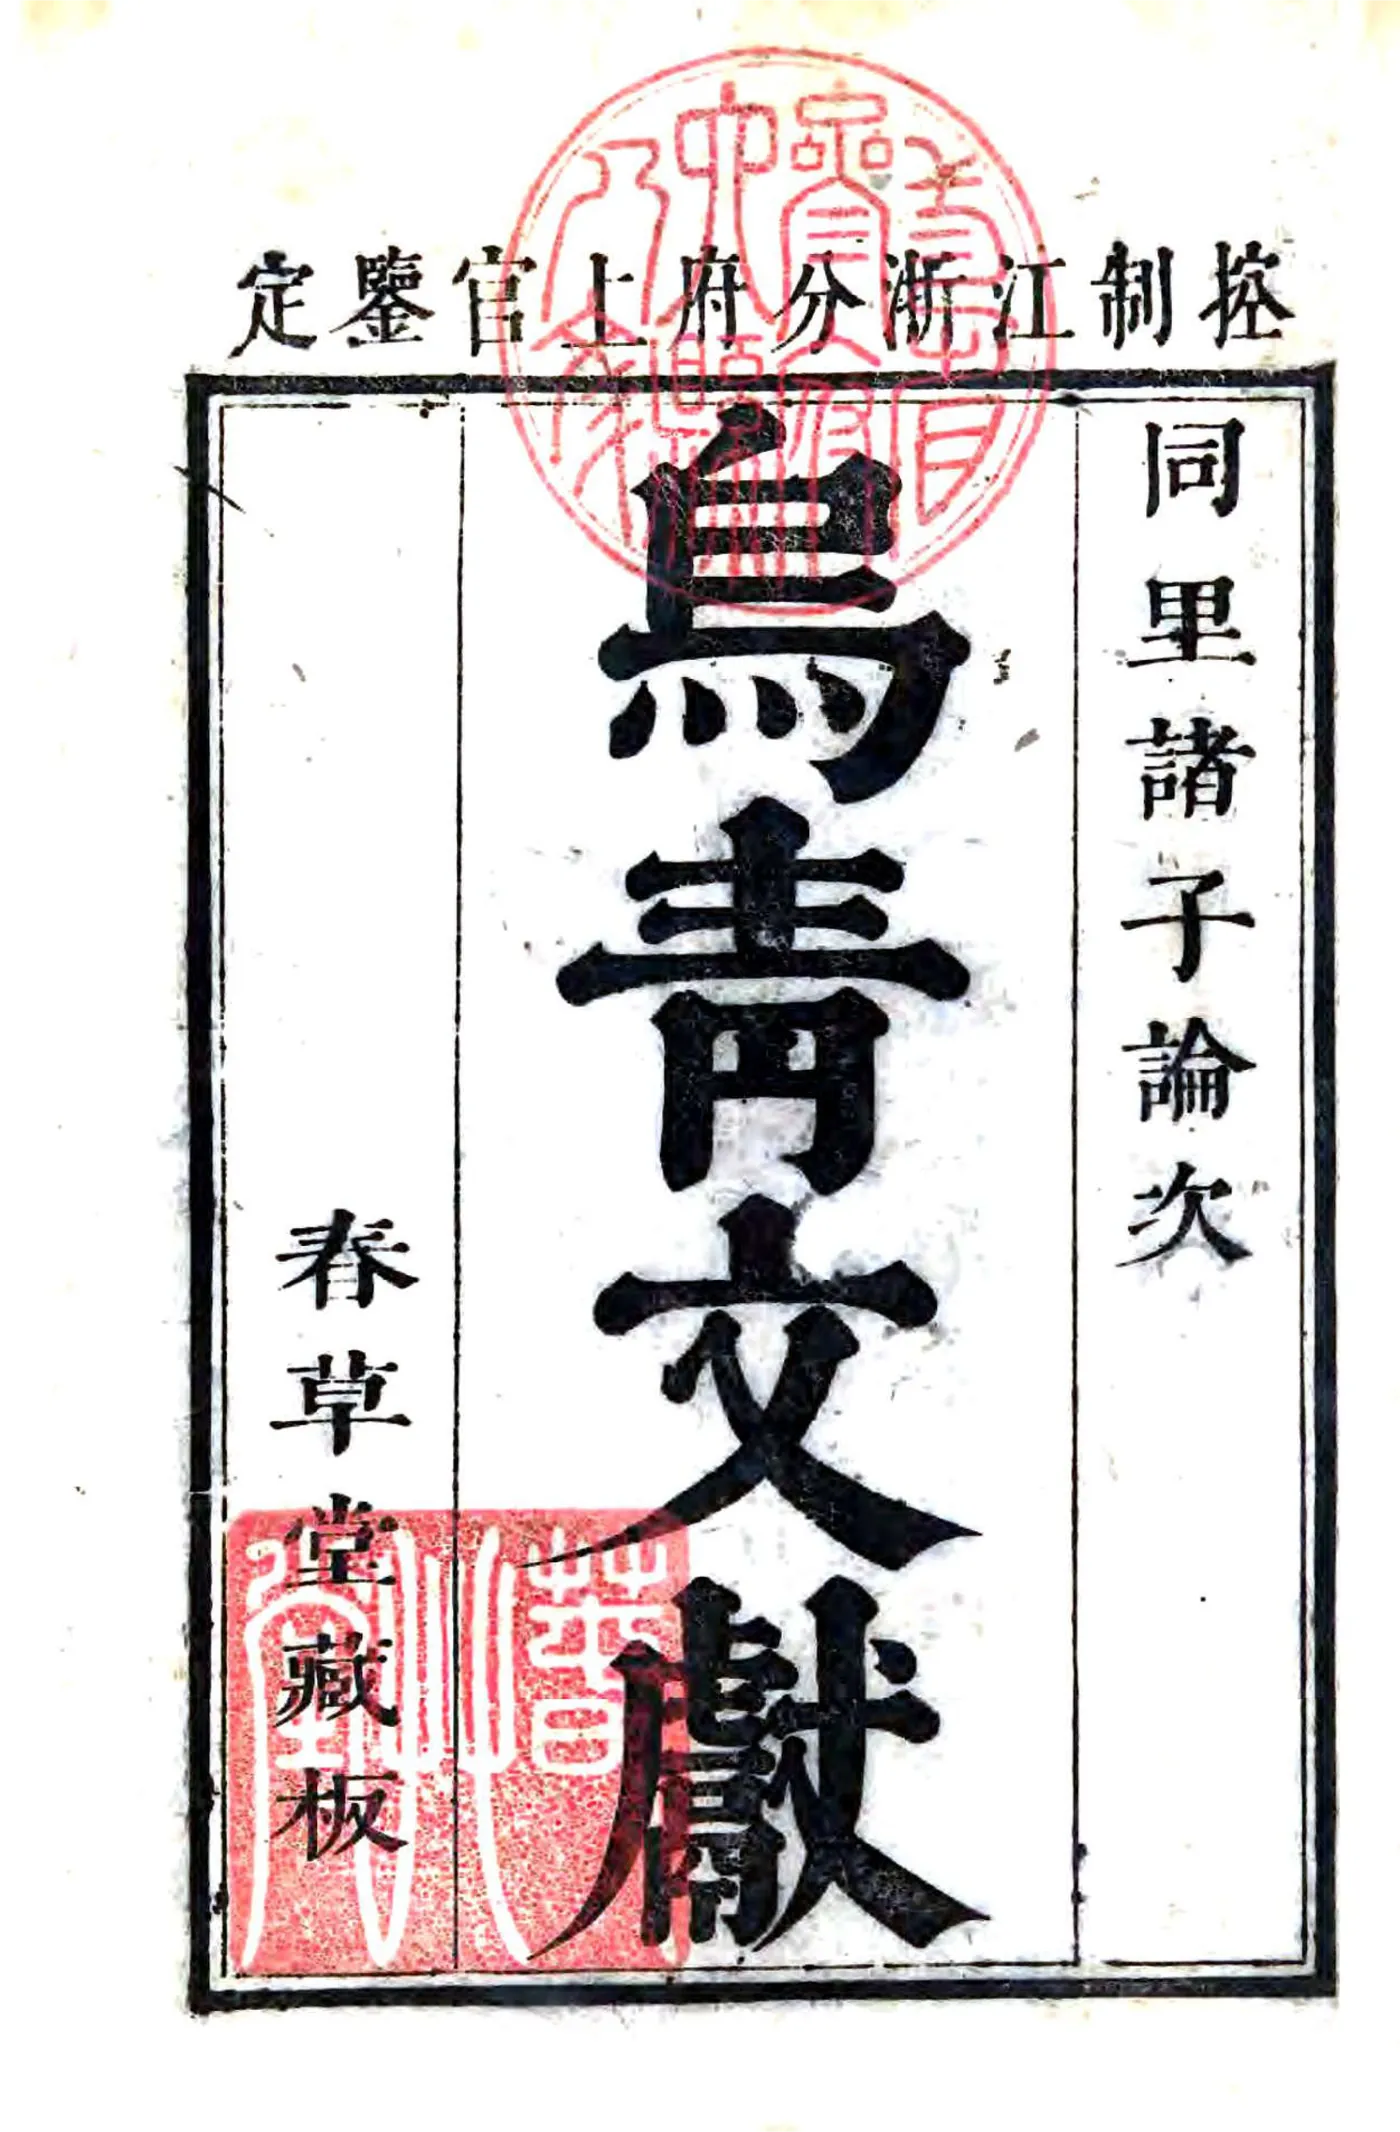 控制江浙分府上官鑒定
同里諸子論次
烏青文獻
春草堂藏板
春艸堂